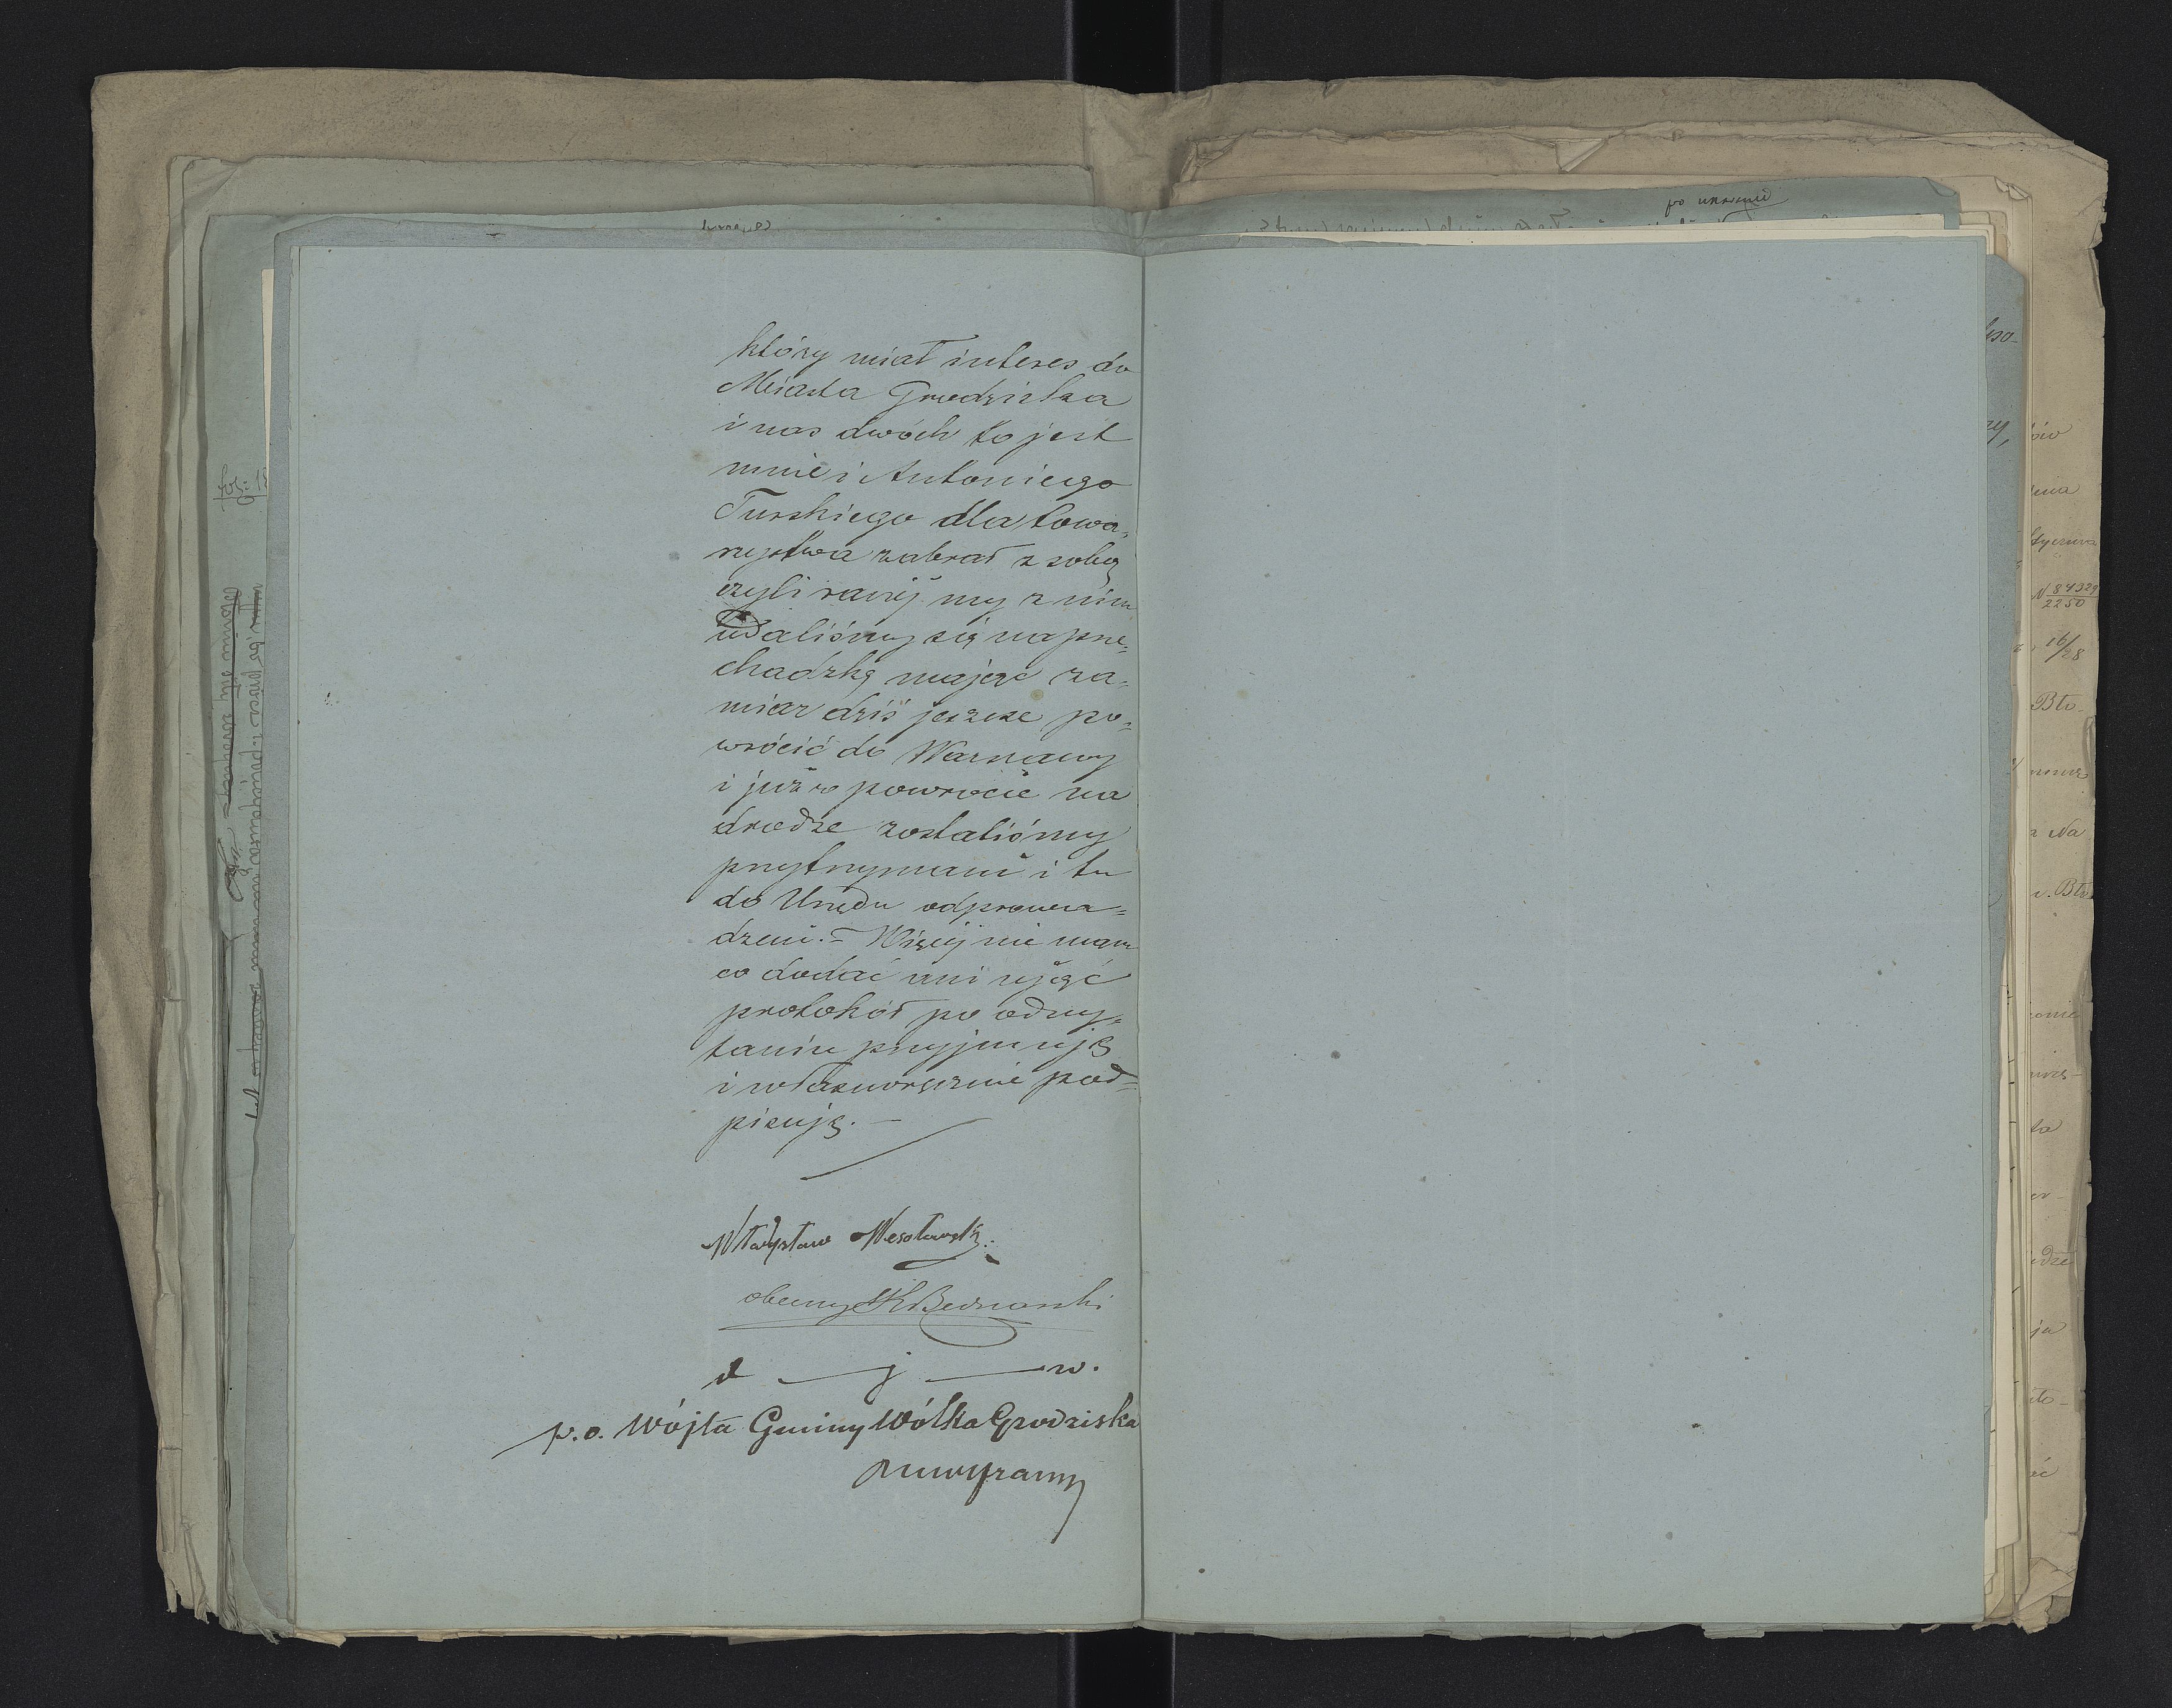 który miał interes do
Miasta Grodziska
i nas dwóch to jest
mnie i Antoniego
Turskiego dla towa=
rzystwa zabrał z sobą
czyli raczéj my z nim
udaliśmy się na prze=
chadzkę mając za=
miar dziś jeszcze po=
wrócić do Warszawy
i już w powrocie na
drodze zostaliśmy
przytrzymani i tu
do Urzędu odprowa=
dzeni. – Więcéj nie mam
co dodać ani ująć
protokół po odczy=
taniu przyjmuję
i własnoręcznie pod=
pisuję. –
Władysław Wesołowski
obecny Bednarski
d — j — w.
p.o. Wójta Gminy Wólka Grodziska
po
N 84329
2250
16/28
Bło-
Na